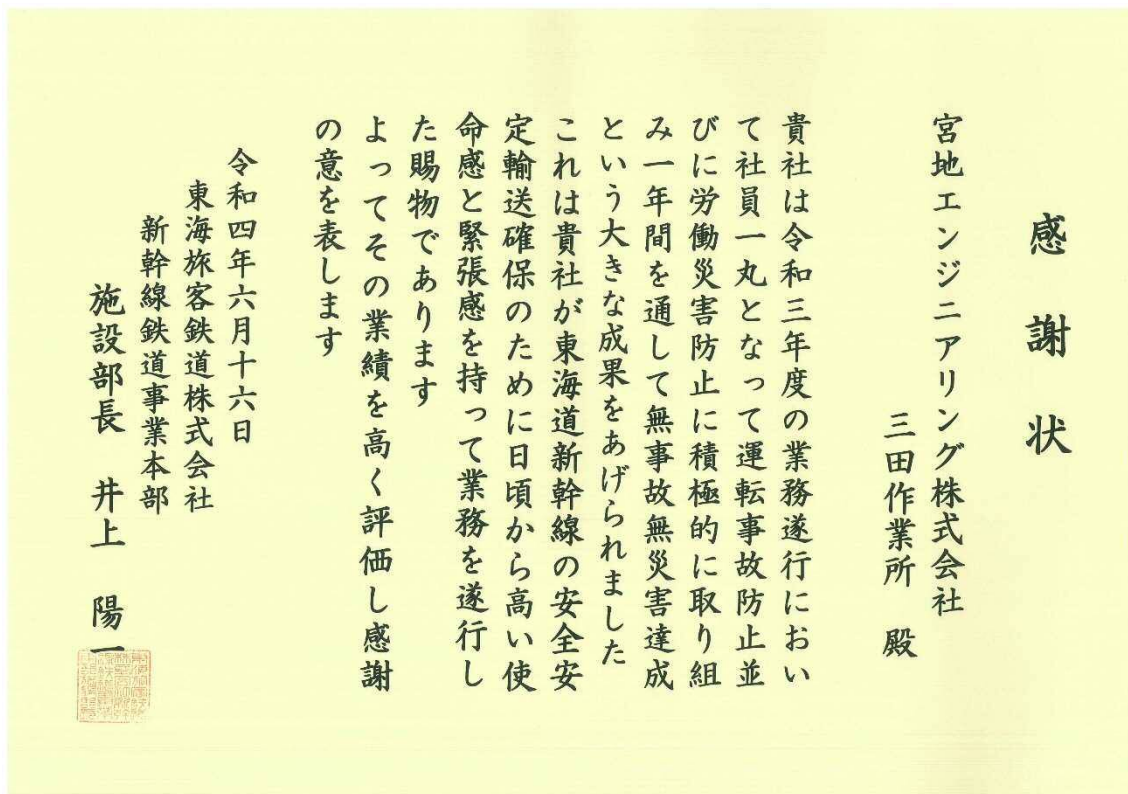 感謝状
宮地エンジニアリング株式会社
三田作業所 殿
貴社は令和三年度の業務遂行におい
て社員一丸となって運転事故防止並
びに労働災害防止に積極的に取り組
み一年間を通して無事故無災害達成
という大きな成果をあげられました
これは貴社が東海道新幹線の安全安
定輸送確保のために日頃から高い使
命感と緊張感を持って業務を遂行し
た賜物であります
よってその業績を高く評価し感謝
の意を表します
令和四年六月十六日
東海旅客鉄道株式会社
新幹線鉄道事業本部
施設部長 井上 陽一